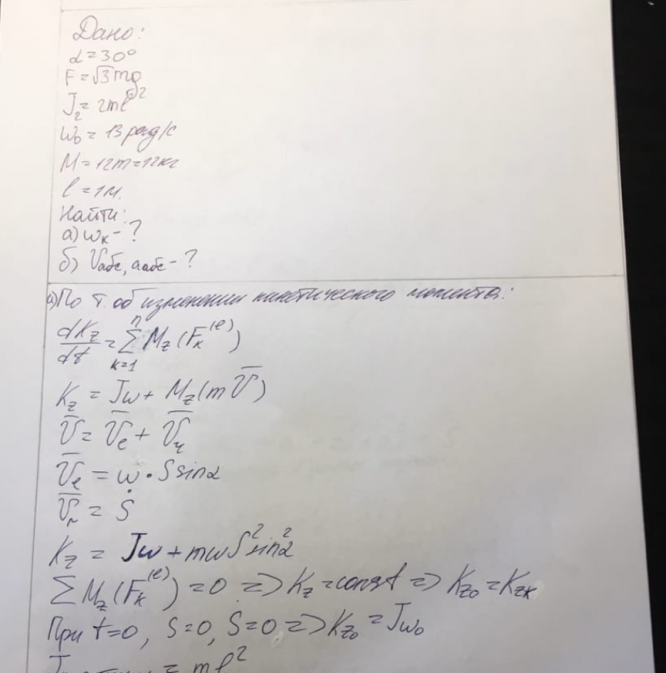 Дано:
α=30°
F=√3mg
J₂=2ml²
ω₀=13рад/с
M=12m=12кг
l=1м.
Найти:
а) ωк-?
б) Vабс, aабс-?
а) По т. об изменении кинетического момента:
dKz/dt = Σ(k=1..n) Mz(Fк⁽ᵉ⁾)
Kz = Jω+Mz(mV̅)
V̅ = V̅e + V̅r
V̅e = ω·S sinα
V̅r = Ṡ
Kz = Jω+mωS²sin²α
ΣMz(Fк⁽ᵉ⁾)=0 => Kz=const => Kz₀=Kzк
При t=0, S=0, Ṡ=0 => Kz₀=Jω₀
= ml²